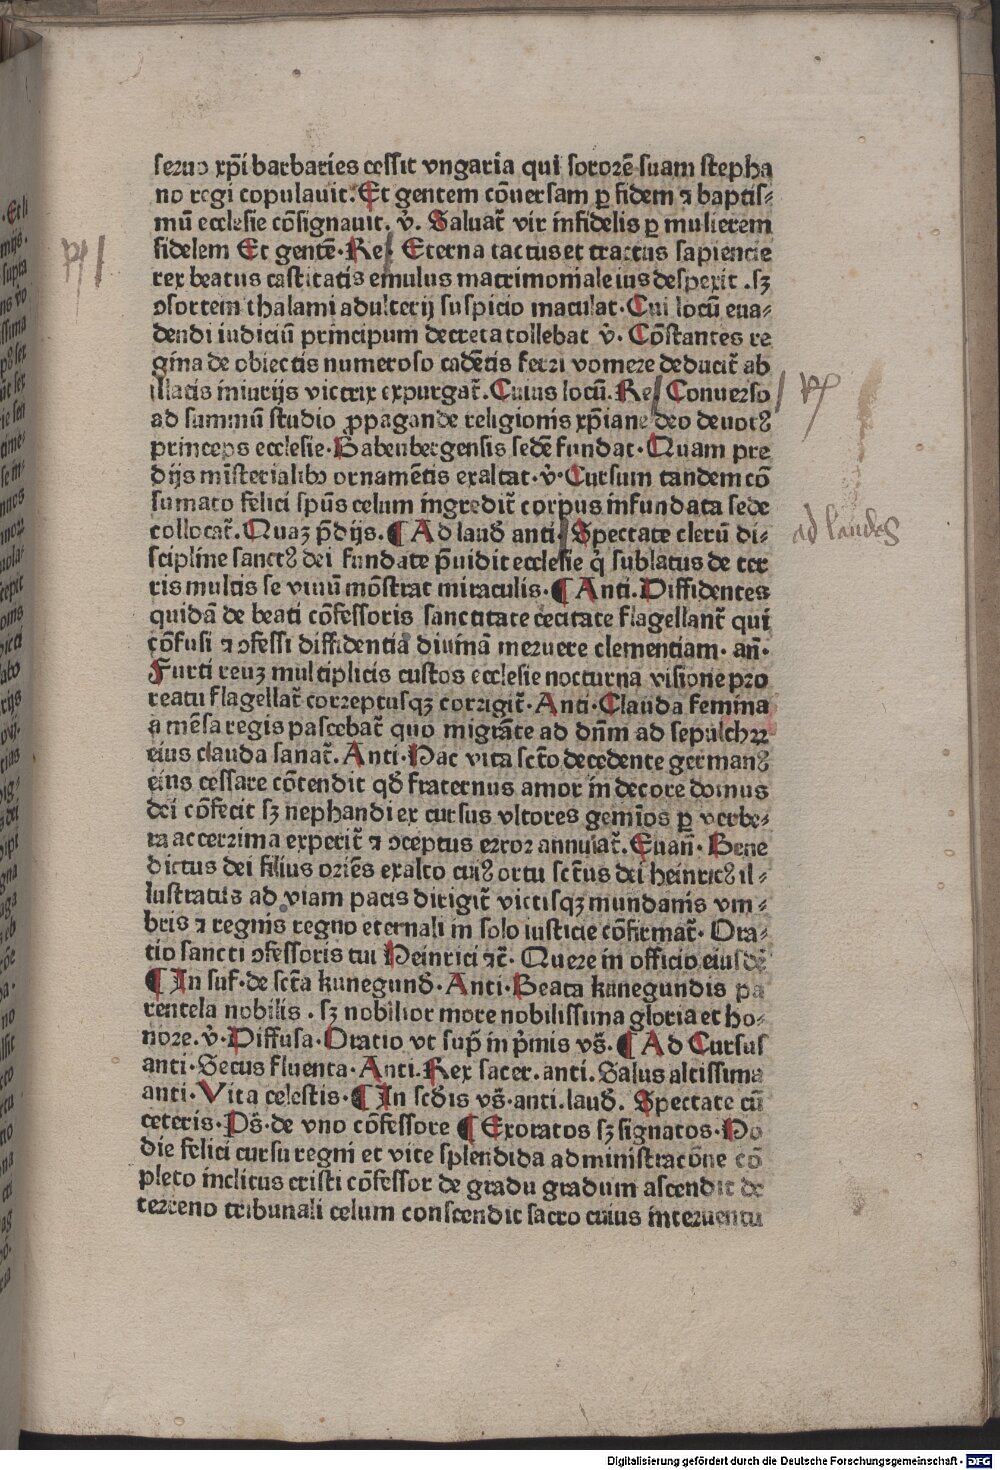 seruo xp̄i barbaries cessit vngaria qui sororē suam stepha
no regi copulauit. Et gentem cōuersam ꝑ fidem ⁊ baptis⸗
mū ecclesie cōsignauit. v̓. Saluat᷑ vir infidelis ꝑ mulierem
fidelem Et gentē. Re. Eterna tactus et tractus sapiencie
rex beatus castitatis emulus matrimoniale ius despexit . sꝫ
ꝯsortem thalami adulterij suspicio maculat. Cui locū eua⸗
dendi iudiciū principum decreta tollebat v̓. Cōstantes re
gina de obiectis numeroso cādētis ferri vomere deducit᷑ ab
illatis iniurijs victrix expurgat᷑. Cuius locū. Re Conuerso
ad summū studio ꝓpagande religionis xp̄iane deo deuotꝰ
princeps ecclesie. Babenbergensis sedē fundat. Quam pre
dijs mīsterialibꝫ ornamētis exaltat. v̓. Cursum tandem cō
sumato felici sp̄us celum ingredit᷑ corpus infundata sede
collocat᷑. Quaꝫ p̄dijs. ¶ Ad laud̄ anti. Spectate clerū di⸗
scipline sanctꝰ dei fundate p̄uidit ecclesie q̓ sublatus de ter
ris multis se viuū mōstrat miraculis. ¶ Anti. Diffidentes
quidā de beati cōfessoris sanctitate cecitate flagellant᷑ qui
cōfusi ⁊ ꝯfessi diffidentiā diuinā meruere clementiam. an̄.
Furti reuꝫ multiplicis custos ecclesie nocturna visione pro
reatu flagellat᷑ correptusqꝫ corrigit᷑. Anti. Clauda femina
a mēsa regis pascebat᷑ quo migrāte ad dn̄m ad sepulchꝝ
eius clauda sanat᷑. Anti. Hac vita sc̄to decedente germanꝰ
eius cessare cōtendit qd̄ fraternus amor in decore domus
dei cōfecit sꝫ nephandi ex cursus vltores gemīos ꝑ verbe⸗
ra accerrima experit᷑ ⁊ ꝯceptus error annulat᷑. Euan̄. Bene
dictus dei filius oriēs exalto cuiꝰ ortu sc̄tus dei heinricꝰ il⸗
lustratus ad viam pacis dirigit᷑ victisqꝫ mundanis vm⸗
bris ⁊ regnis regno eternali in solo iusticie cōfirmat᷑. Ora⸗
tio sancti ꝯfessoris tui Heinrici ⁊c̄. Quere in officio eiusdē
¶ In suf. de sc̄ta kunegund̄. Anti. Beata kunegundis pa
rentela nobilis . sꝫ nobilior more nobilissima gloria et ho⸗
nore. v̓. Diffusa. Oratio vt sup̄ in p̓mis vs̄. ¶ Ad Cursus
anti. Secus fluenta. Anti. Rex sacer. anti. Salus altissima
anti. Vita celestis. ¶ In scd̄is vs̄. anti. laud̄. Spectate cū
ceteris. Ps̄. de vno cōfessore ¶ Exoratos sꝫ signatos. Ho
die felici cursu regni et vite splendida administracōne cō
pleto inclitus cristi cōfessor de gradu gradum ascendit de
terreno tribunali celum conscendit sacro cuius interuentu
ad laudes
Digitalisierung gefördert durch die Deutsche Forschungsgemeinschaft - DFG